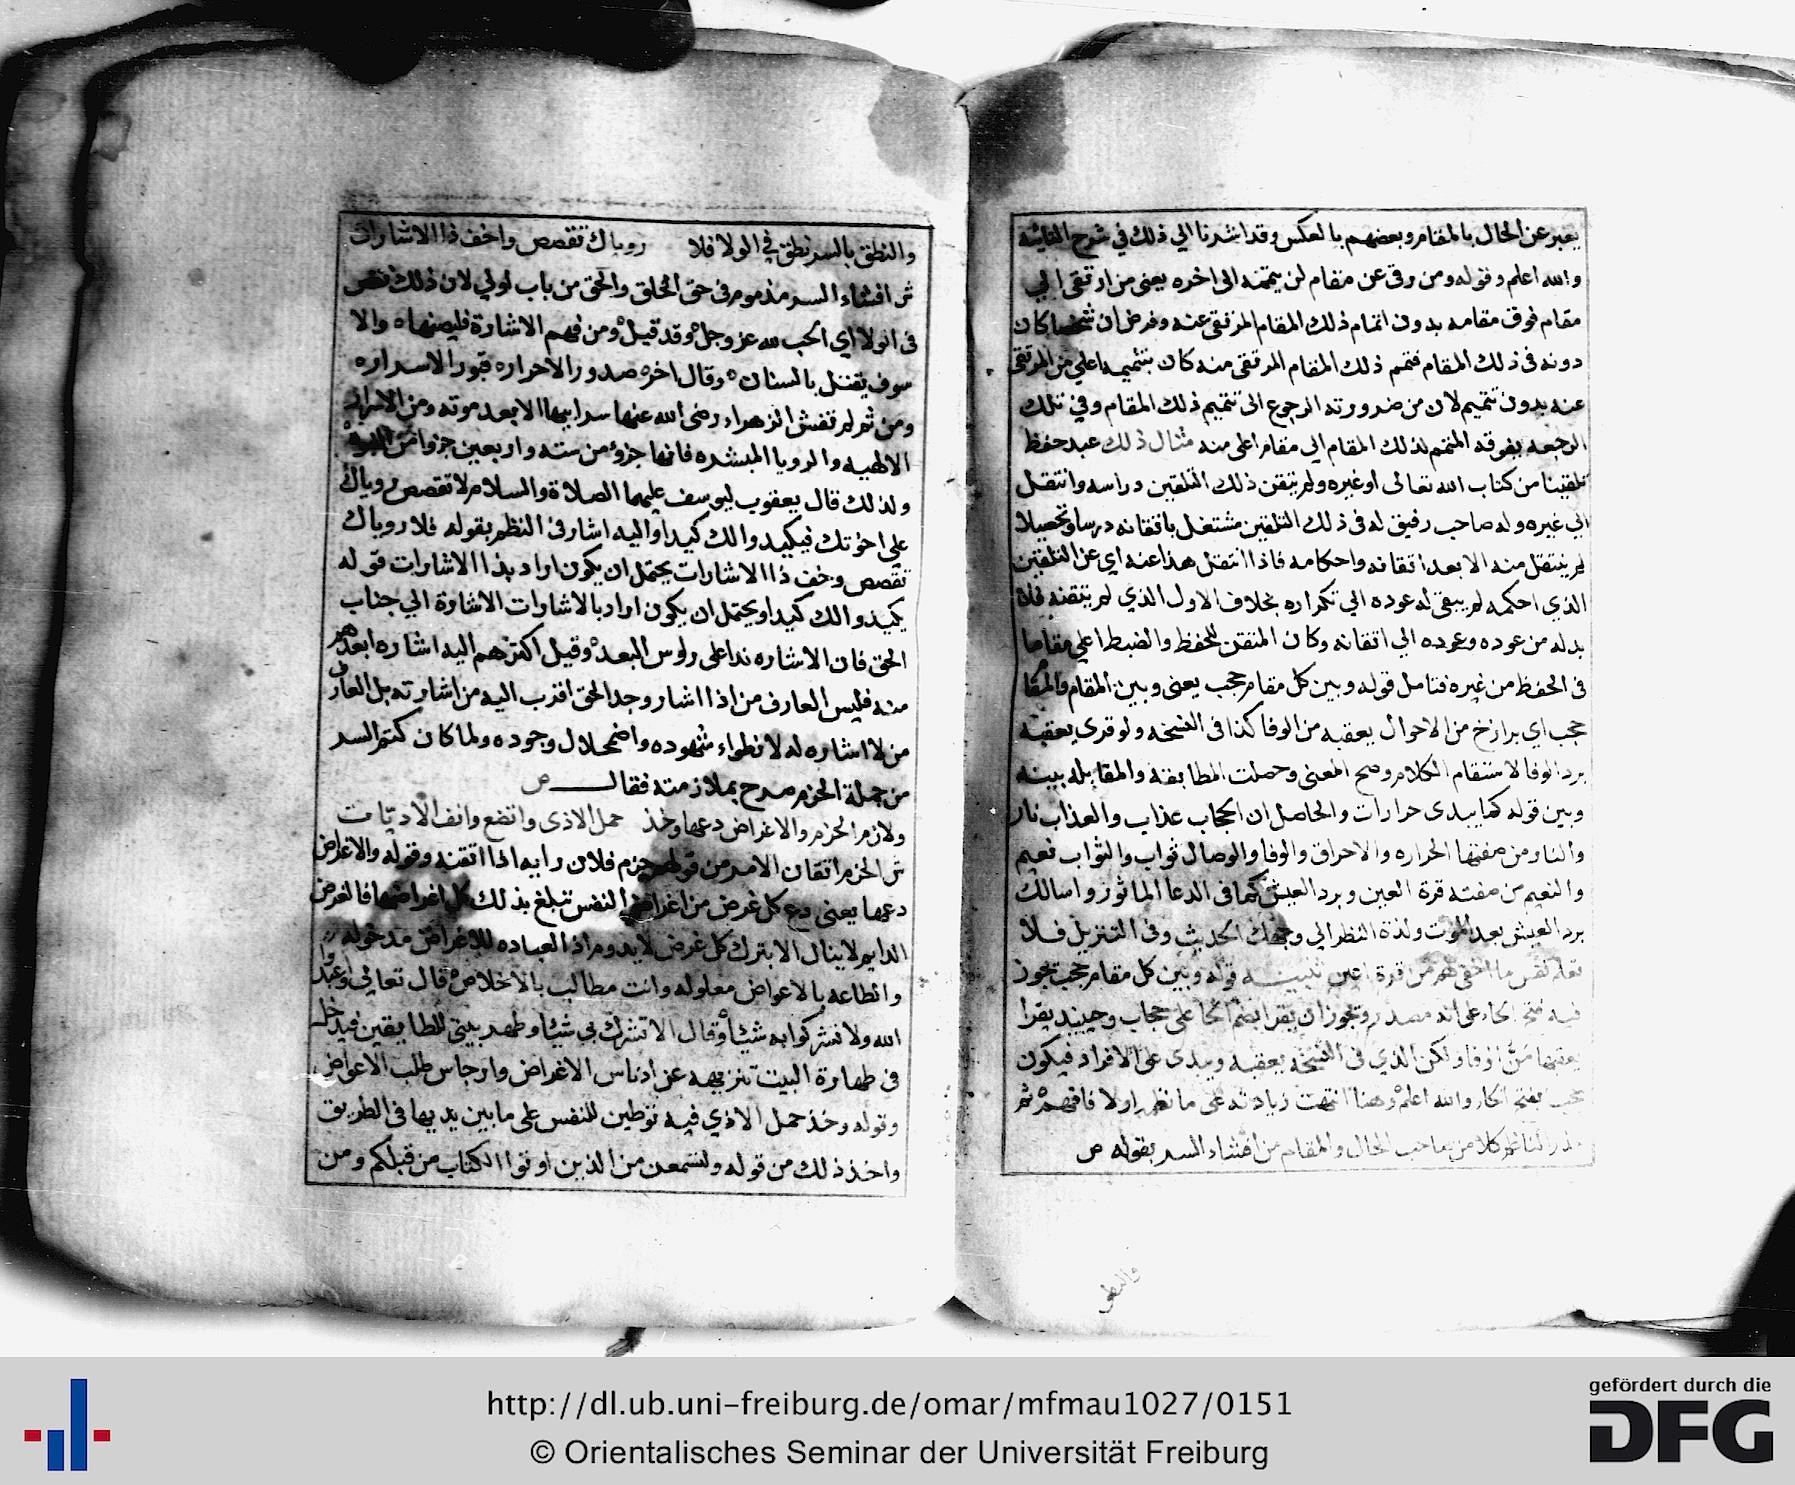 يعبر عن الحال بالمقام وبعضهم بالعكس وقد اشرنا الي ذلك في شرح التائيه
والله اعلم وقوله ومن رقى عن مقام لن يتممه الى اخره يعنى من ارتقى الي
مقام فوق مقامه بدون اتمام ذلك المقام المرتقى عنه وفرض ان شخصا كان
دونه فى ذلك المقام فتمم ذلك المقام المرتقى منه كان بتتميمه اعلي من المرتقى
عنه بدون تتميم لان من ضرورته الرجوع الى تتميم ذلك المقام وفي تلك
الرجعه يفوقه المتمم لذلك المقام الي مقام اعلى منه مثال ذلك عبد حفظ
تلقينا من كتاب الله تعالى او غيره ولم يتقن ذلك التلقين دراسه وانتقل
الي غيره وله صاحب رفيق له فى ذلك التلقين مشتغل باتقانه درسا وتحصيلا
لم ينتقل منه الا بعد اتقانه واحكامه فاذا انتقل هذا عنه اي عن التلقين
الذي احكمه لم يبقى له عوده الي تكراره بخلاف الاول الذي لم يتقنه فلا
بد له من عوده وعوده الي اتقانه وكان المتقن للحفظ والضبط اعلي مقاما
فى الحفظ من غيره فتامل قوله وبين كل مقام حجب يعنى وبين المقام والمقا
حجب اي برازخ من الاحوال يعقبه من الوفا كذا فى النسخه ولو قرى يعقبه
برد الوفا لاستقام الكلام وصح المعنى وحصلت المطابقه والمقابله بينه
وبين قوله كما يبدى حرارات والحاصل ان الحجاب عذاب والعذاب نار
والنار من صفتها الحراره والاحراق والوفا والوصال ثواب والثواب نعيم
والنعيم من صفته قرة العين وبرد العيش كما فى الدعا الماثور واسالك
برد العيش بعد الموت ولذة النظر الي وجهك الحديث وفى التنزيل فلا
تعلم نفس ما اخفى لهم من قرة اعين تنبيه قوله وبين كل مقام حجب يجوز
فيه فتح الحاء على انه مصدر ويجوز ان يقرا بضم الحا على حجاب وحينيد يقرا
يعقبها من الوفا ولكن الذي فى النسخه يعقبه ويبدى على الافراد فيكون
حجب بفتح الحاء والله اعلم وهنا انتهت زيادته على ما تقدم اولا فافهم ثم
الناظم كلا من صاحب الحال والمقام من افشاء السر بقوله ص
والنطق
والنطق بالسر نطق فى الولا فلا رؤياك تقصص واخف ذا الاشارات
ش افشاء السر مذموم فى حق الخلق والحق من باب لولي لان ذلك نقص
فى الولا اي الحب لله عز وجل وقد قيل ومن فهم الاشارة فليصنها والا
سوف يقتل بالسنان وقال اخره صدور الاحراره قبور الاسراره
ومن ثم لم تفش الزهراء رضى الله عنها سر ابيها الا بعد موته ومن الاسرار
الالهيه والرويا المبشده فانها جزؤ من سته واربعين جزوا من النبوه
ولذلك قال يعقوب ليوسف عليهما الصلاة والسلام لا تقصص رؤياك
على اخوتك فيكيدوا لك كيدا واليه اشار فى النظم بقوله فلا روياك
تقصص وخف ذا الاشارات يحتمل ان يكون اراد بذا الاشارات قوله
يكيدوا لك كيدا ويحتمل ان يكون اراد بالاشارات الاشارة الي جناب
الحق فان الاشاره ندا على رؤس البعد وقيل اكثرهم اليه اشاره ابعدهم
منه فليس العارف من اذا اشار وجد الحق اقرب اليه من اشارته بل العارف
من لا اشاره له لانطواء شهوده واضمحلال وجوده ولما كان كتم السر
من جملة الحزم صرح بملازمته فقال ص
ولازم الحزم والاغراض دعها وخذ حمل الاذى واتضع وانف الاديات
ش الحزم اتقان الامر من قولهم حزم فلان رايه اذا اتقنه وقوله والاغراض
دعها يعنى دع كل غرض من اغراض النفس تبلغ بذلك كل اغراضها فالغرض
الدايم لا ينال الا بترك كل غرض لا يدوم اذ العباده للاغراض مدخوله
والطاعه بالاعواض معلوله وانت مطالب بالاخلاص قال تعالي واعبدوا
الله ولا تشركوا به شيئا وقال الا تشرك بي شيئا وطهر بيتي للطايفين فيدخل
فى طهارة البيت تنزيهه عن ادناس الاغراض وارجاس طلب الاعواض
وقوله وخذ حمل الاذي فيه توطين للنفس على ما بين يديها فى الطريق
واخذ ذلك من قوله ولتسمعن من الذين اوتوا الكتاب من قبلكم ومن
http://dl.ub.uni-freiburg.de/omar/mfmau1027/0151
© Orientalisches Seminar der Universität Freiburg
gefördert durch die
DFG